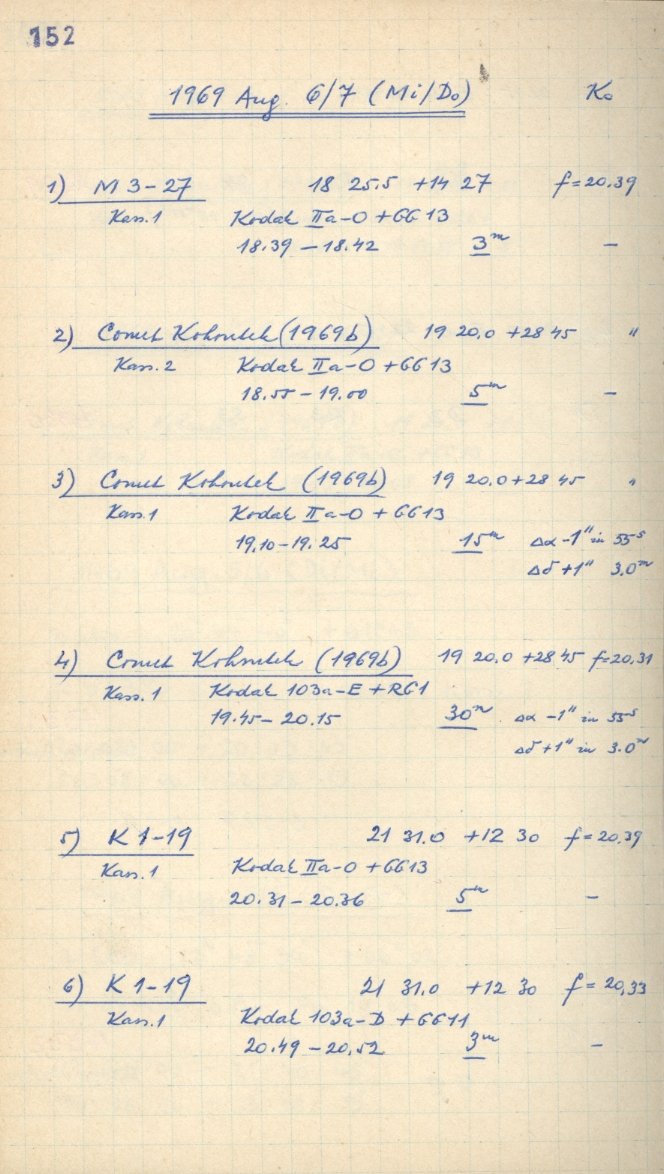 152
1969 Aug. 6/7 (Mi/Do) Ko
1) M 3-27 18 25.5 +14 27 f=20.39
Kass.1 Kodak IIa-O + GG 13
18.39 – 18.42 3m –
2) Comet Kohoutek (1969b) 19 20.0 +28 45 "
Kass. 2 Kodak IIa-O + GG 13
18.55 – 19.00 5m –
3) Comet Kohoutek (1969b) 19 20.0 +28 45 "
Kass.1 Kodak IIa-O + GG 13
19.10 – 19.25 15m Δα -1" in 55s
Δδ +1" 3.0m
4) Comet Kohoutek (1969b) 19 20.0 +28 45 f=20.31
Kass. 1 Kodak 103a-E + RG1
19.45 – 20.15 30m Δα -1" in 55s
Δδ +1" in 3.0m
5) K 1-19 21 31.0 +12 30 f=20.39
Kass.1 Kodak IIa-O + GG 13
20.31 – 20.36 5m –
6) K 1-19 21 31.0 +12 30 f=20,33
Kass.1 Kodak 103a-D + GG 11
20.49 – 20.52 3m –